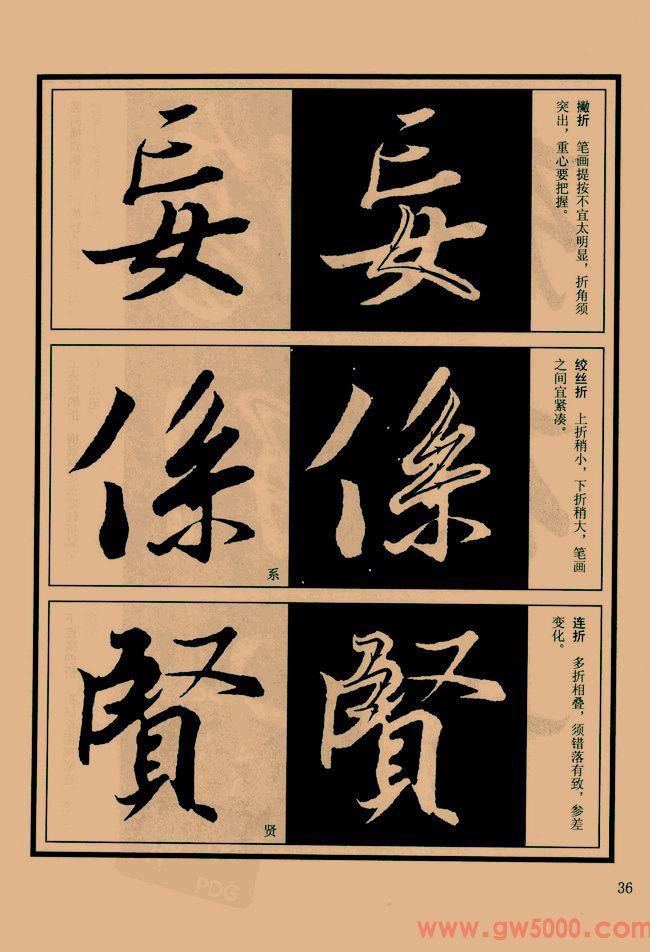 妄
撇折　笔画提按不宜太明显，折角须
突出，重心要把握。
係
系
绞丝折　上折稍小，下折稍大，笔画
之间宜紧凑。
賢
贤
连折　多折相叠，须错落有致，参差
变化。
PDG
36
www.gw5000.com